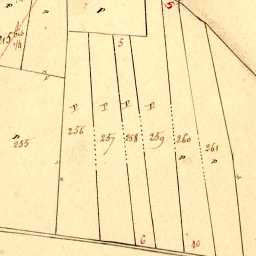 P
5
5
P P P P
256 257 258 259 260 261
255
6
10